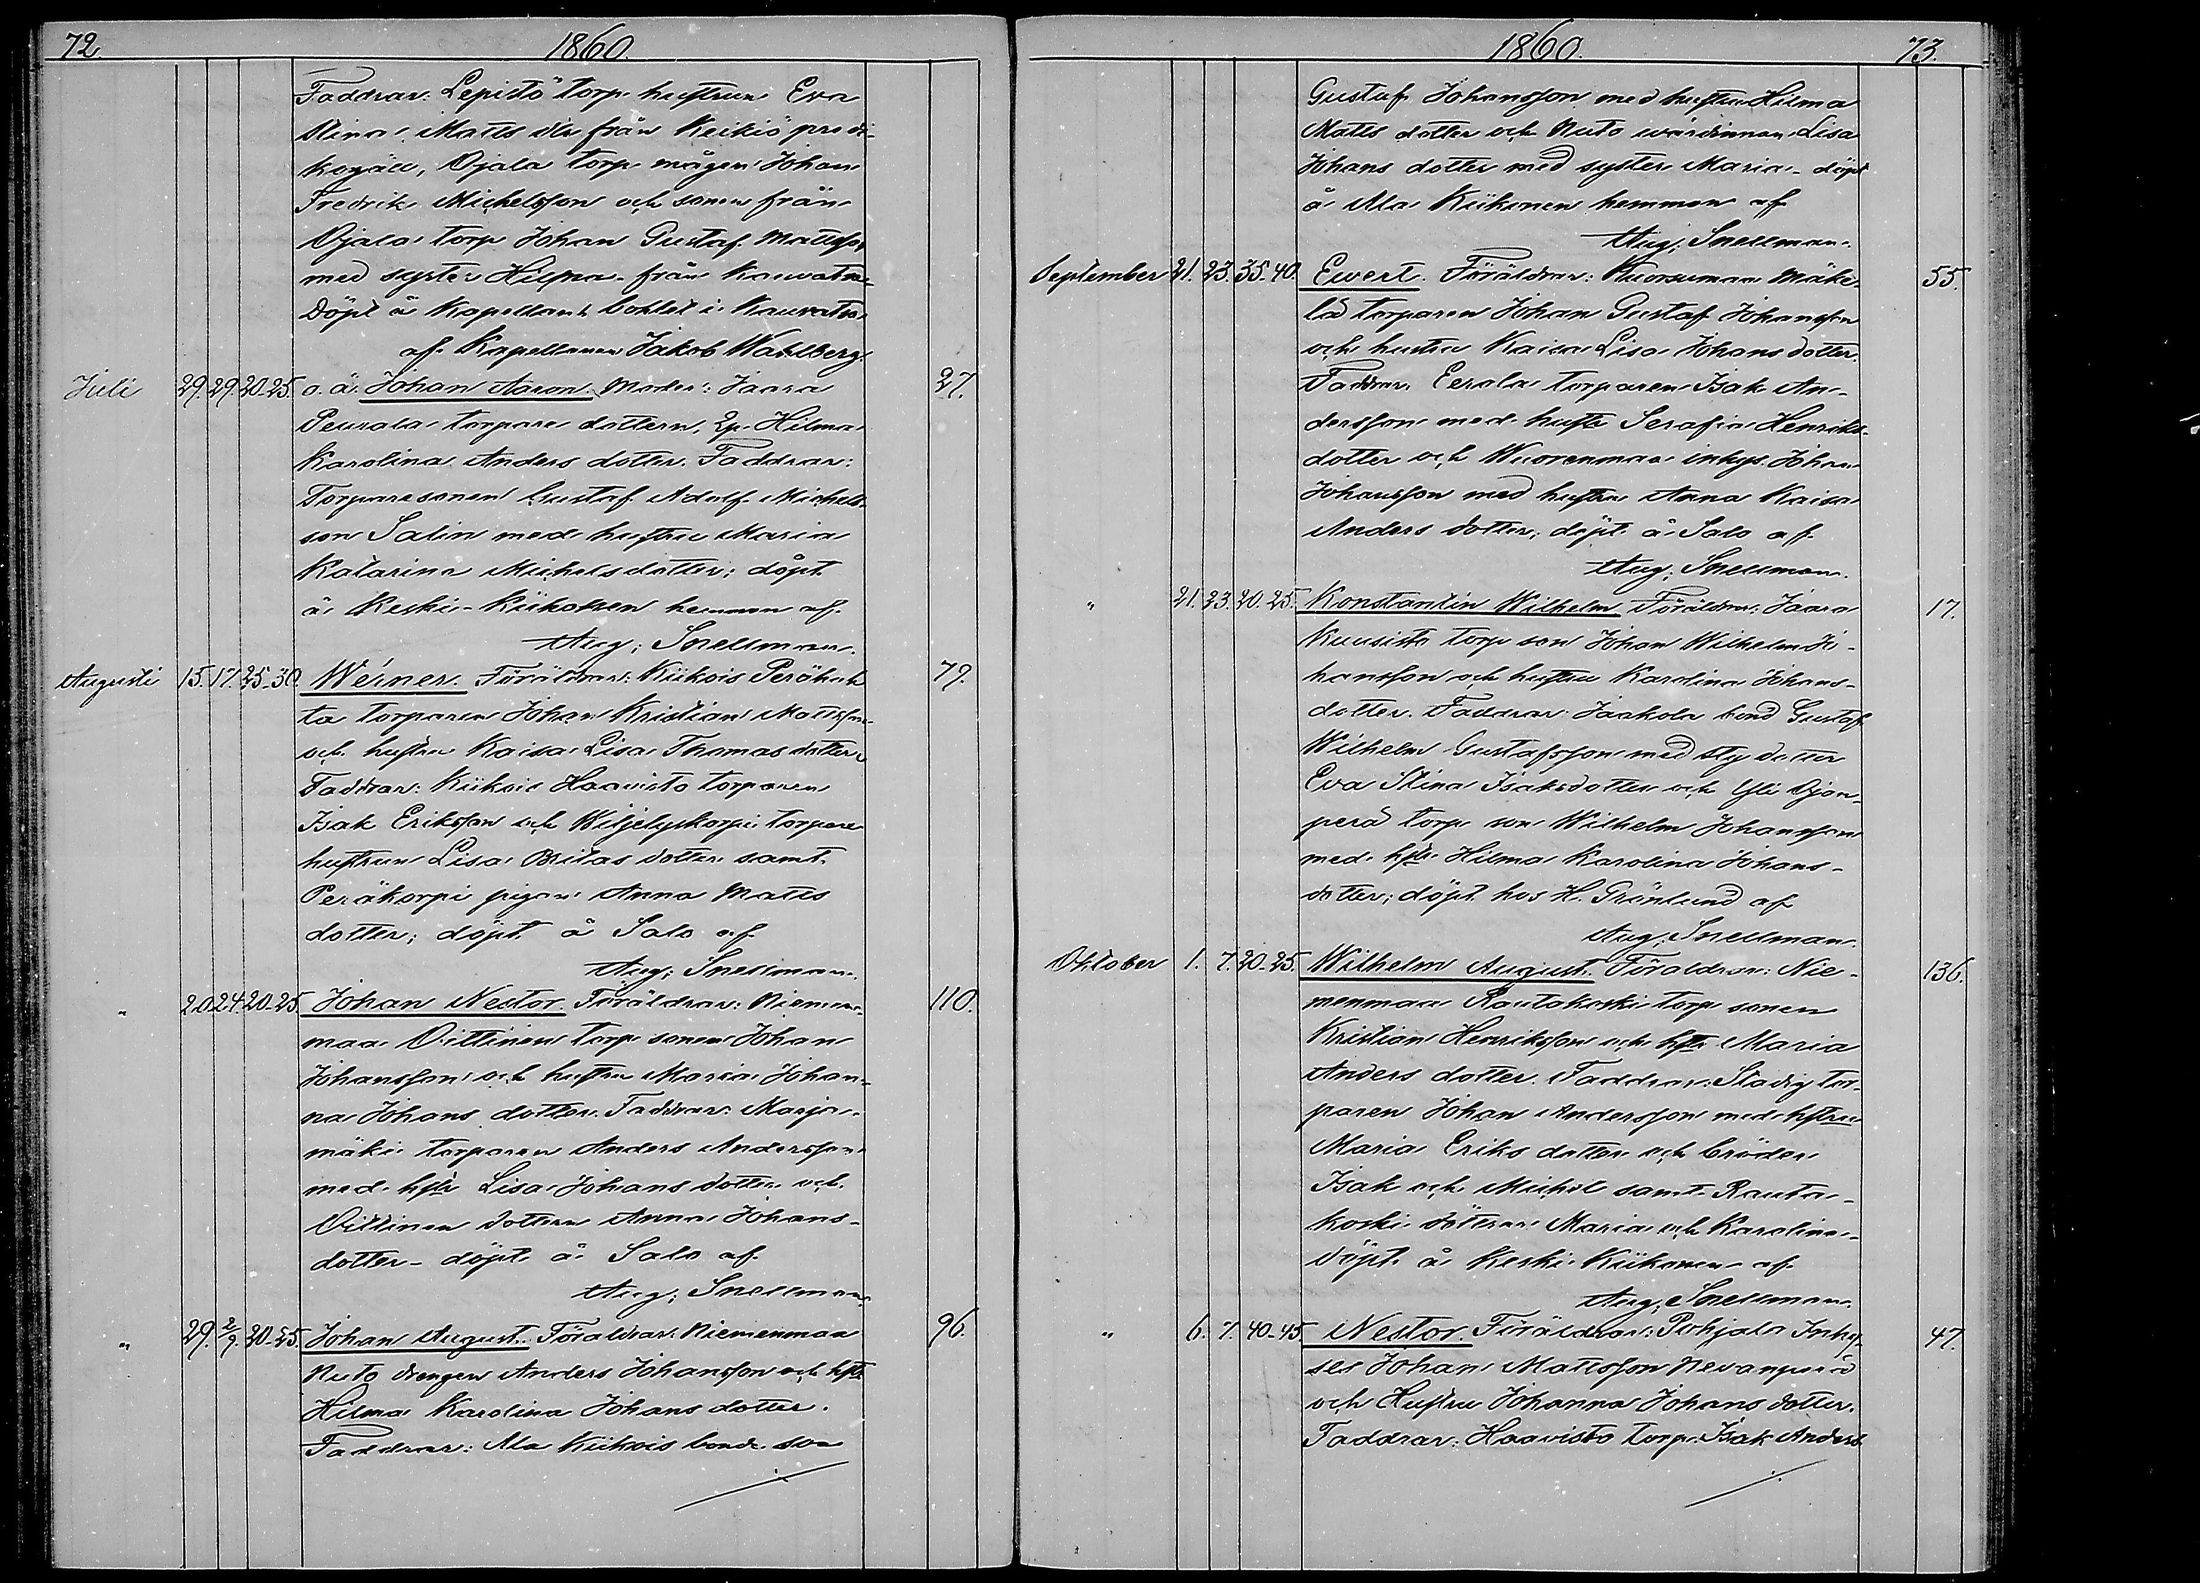 72. 1860.
Faddrar: Lepistö torp. hustrun Eva
Stina Matts dtr från Keikiö predi-
kogäll, Ojala torp. mågen Johan
Fredrik Michelsson och sonen från
Ojala torp Johan Gustaf Mattsson
med syster Hilma från Kauvatsa
döpt å Kapellans bohlet i Kauvatsa
af Kapellanen Jakob Wahlberg.
Juli 29. 29. 20-25. o.ä. Johan Aaron. Moder: Jaara 27.
Peurala torpare dottern, Qp. Hilma
Karolina Anders dotter. Faddrar:
Torparesonen Gustaf Adolf Michels-
son Salin med hustru Maria
Katarina Michelsdotter; döpt
å Keski-Kiikoisen hemman af
Aug. Snellman.
Augusti 15. 17. 25-30. Werner. Föräldrar: Kiikois Perähuh- 79.
ta torparen Johan Kristian Mattsson
och hustru Kaisa Lisa Thomas dotter.
Faddrar: Kiikois Haavisto torparen
Isak Eriksson och Wiljelyskorpi torpare
hustrun Lisa Britas dotter samt
Peräkorpi pigan Anna Matts
dotter; döpt å Salo af
Aug. Snellman.
" 20. 24. 20-25. Johan Nestor. Föräldrar: Niemen- 110.
maa Vittinen torp. sonen Johan
Johansson och hustru Maria Johan-
na Johans dotter. Faddrar: Marja-
mäki torparen Anders Andersson
med hstr Lisa Johans dotter och
Vittinen dottern Anna Johans-
dotter - döpt å Salo af
Aug. Snellman.
" 29. 2/9. 20-25. Johan August. Föräldrar: Niemenmaa 96.
Nuto drengen Anders Johansson och hstr
Hilma Karolina Johans dotter.
Faddrar: Ala Kiikois bonde son
1860. 73.
Gustaf Johansson med hustru Hilma
Matts dotter och Nuto wärdinnan Lisa
Johans dotter med syster Maria - döpt
å Ala Kiikonen hemman af
Aug. Snellman.
September 21. 23. 35-40. Ewert. Föräldrar: Wuorenmaa Mäke- 55.
lä torparen Johan Gustaf Johansson
och hustru Kaisa Lisa Johans dotter.
Faddrar: Eerola torparen Isak An-
dersson med hustr Serafia Henriks-
dotter och Wuorenmaa inhys. Johan
Johansson med hustru Anna Kaisa
Anders dotter; döpt å Salo af
Aug. Snellman.
" 21. 23. 20-25. Konstantin Wilhelm. Föräldrar: Jaara 17.
Kuusisto torp son Johan Wilhelm Jo-
hansson och hustru Karolina Johans-
dotter. Faddrar: Jaakola bond Gustaf
Wilhelm Gustafsson med sty dotter
Eva Stina Isaksdotter och Yli Ojan-
perä torp. son Wilhelm Johansson
med hstr Hilma Karolina Johans-
dotter; döpt hos H. Grönlund af
Aug. Snellman.
Oktober 1. 7. 20-25. Wilhelm August. Föräldrar: Nie- 136.
menmaa Rautakoski torp. sonen
Kristian Henriksson och hstr Maria
Anders dotter. Faddrar: Stadig tor-
paren Johan Andersson med hstru
Maria Eriks dotter och bröder
Isak och Michel samt Rauta-
koski döttrar Maria och Karolina -
döpt å Keski Kiikonen af
Aug. Snellman.
" 6. 7. 40-45. Nestor. Föräldrar: Pohjala Inhy- 47.
ses Johan Mattsson Nevanperä
och Hustru Johanna Johans dotter.
Faddrar: Haavisto torp. Isak Anders